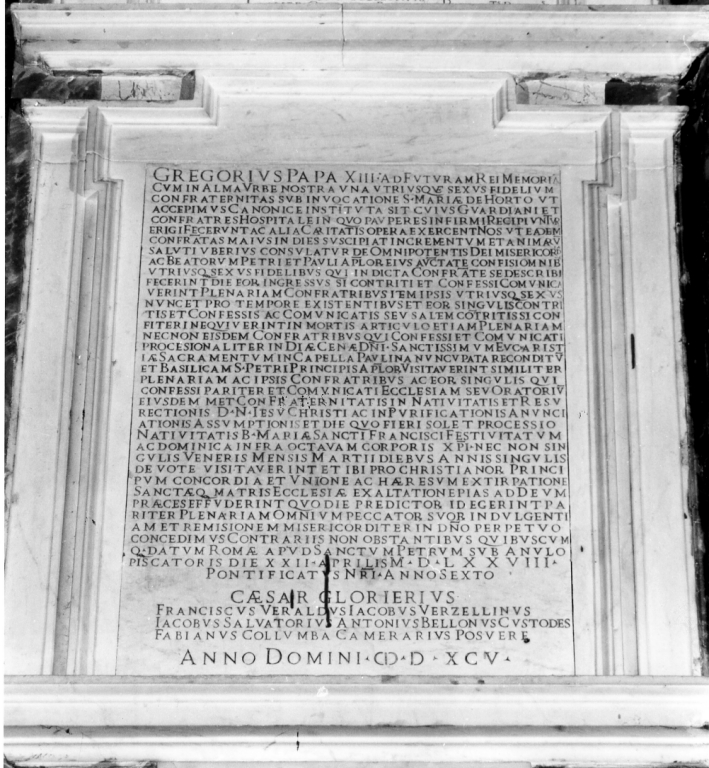 GREGORIVS PAPA XIII·AD FVTVRAM REI MEMORIA
CVM IN ALMA VRBE NOSTRA VNA VTRIVSQVE SEXVS FIDELIVM
CONFRATERNITAS SVB INVOCATIONE S·MARIÆ DE HORTO VT
ACCEPIMVS CANONICE INSTITVTA SIT CVIVS GVARDIANI ET
CONFRATRES HOSPITALE IN QVO PAVPERES INFIRMI RECIPIVNTVR
ERIGI FECERVNT AC ALIA CARITATIS OPERA EXERCENT NOS VT EADEM
CONFRATAS MAIVS IN DIES SVSCIPIAT INCREMENTVM ET ANIMARV
SALVTI VBERIVS CONSVLATVR DE OMNIPOTENTIS DEI MISERICOR
AC BEATORVM PETRI ET PAVLI APLOR EIVS AVCTATE CONFISI OMNIB
VTRIVSQ SEXVS FIDELIBVS QVI IN DICTA CONFRATE SE DESCRIBI
FECERINT DIE EOR INGRESSVS SI CONTRITI ET CONFESSI COMVNICA
VERINT PLENARIAM CONFRATRIBVS ITEM IPSIS VTRIVSQ SEXVS
NVNC ET PRO TEMPORE EXISTENTIBVS ET EOR SINGVLIS CONTRI
TIS ET CONFESSIS AC COMVNICATIS SEV SALEM COTRITIS SI CON
FITERI NEQVIVERINT IN MORTIS ARTICVLO ETIAM PLENARIAM
NEC NON EISDEM CONFRATRIBVS QVI CONFESSI ET COMVNICATI
PROCESIONALITER IN DIÆ CENÆ DÑI·SANCTISSIMVM EVCARIST
IÆ SACRAMENTVM IN CAPELLA PAVLINA NVNCVPATA RECONDITV
ET BASILICAM S·PETRI PRINCIPIS APLOR VISITAVERINT SIMILITER
PLENARIAM AC IPSIS CONFRATRIBVS AC EOR SINGVLIS QVI
CONFESSI PARITER ET COMVNICATI ECCLESIAM SEV ORATORIV
EIVSDEM MET CONFRATERNITATIS IN NATIVITATIS ET RESV
RECTIONIS D·N·IESV CHRISTI AC IN PVRIFICATIONIS ANVNCI
ATIONIS ASSVMPTIONIS ET DIE QVO FIERI SOLET PROCESSIO
NATIVITATIS B·MARIÆ SANCTI FRANCISCI FESTIVITATVM
AC DOMINICA INFRA OCTAVAM CORPORIS XPI·NEC NON SIN
GVLIS VENERIS MENSIS MARTII DIEBVS ANNIS SINGVLIS
DEVOTE VISITAVERINT ET IBI PRO CHRISTIANOR PRINCI
PVM CONCORDIA ET VNIONE AC HÆRESVM EXTIRPATIONE
SANCTÆQ MATRIS ECCLESIÆ EXALTATIONE PIAS AD DEVM
PRÆCES EFFVDERINT QVO DIE PREDICTOR ID EGERINT PA
RITER PLENARIAM OMNIVM PECCATOR SVOR INDVLGENTI
AM ET REMISIONEM MISERICORDITER IN DÑO PERPETVO
CONCEDIMVS CONTRARIIS NON OBSTANTIBVS QVIBVSCVM
Q·DATVM ROMÆ APVD SANCTVM PETRVM SVB ANVLO
PISCATORIS DIE XXII·APRILIS M·D·LXXVIII·
PONTIFICATVS NRI·ANNO SEXTO
CÆSAR GLORIERIVS
FRANCISCVS VERALDVS IACOBVS VERZELLINVS
IACOBVS SALVATORIVS ANTONIVS BELLONVS CVSTODES
FABIANVS COLLVMBA CAMERARIVS POSVERE
ANNO DOMINI·CIↃ·D·XCV·